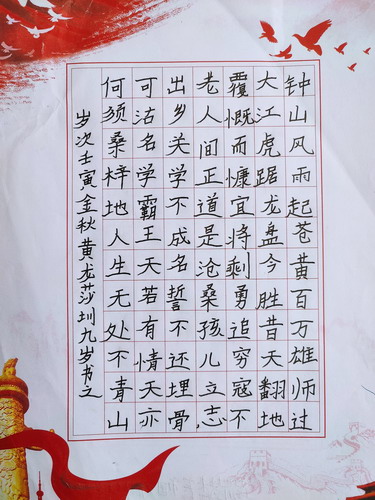 钟山风雨起苍黄百万雄师过
大江虎踞龙盘今胜昔天翻地
覆慨而慷宜将剩勇追穷寇不
老人间正道是沧桑孩儿立志
出乡关学不成名誓不还埋骨
可沽名学霸王天若有情天亦
何须桑梓地人生无处不青山
岁次壬寅金秋黄龙莎圳九岁书之